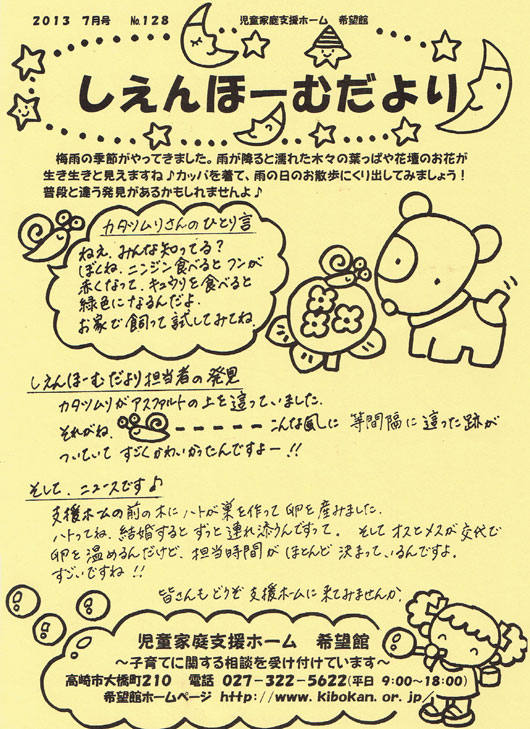 2013 7月号 No.128 児童家庭支援ホーム 希望館
しえんほーむだより
梅雨の季節がやってきました。雨が降ると濡れた木々の葉っぱや花壇のお花が
生き生きと見えますね♪カッパを着て、雨の日のお散歩にくり出してみましょう!
普段と違う発見があるかもしれませんよ♪
カタツムリさんのひとり言
ねえ、みんな知ってる?
ぼくね、ニンジン食べるとフンが
赤くなって、キュウリを食べると
緑色になるんだよ。
お家で飼って試してみてね。
しえんほーむだより担当者の発見
カタツムリがアスファルトの上を這っていました。
それがね、 ----- こんな風に 等間隔に這った跡が
ついていて すごくかわいかったんですよー!!
そして、ニュースです♪
支援ホームの前の木にハトが巣を作って卵を産みました。
ハトってね、結婚するとずっと連れ添うんですって。 そしてオスとメスが交代で
卵を温めるんだけど、担当時間がほとんど決まっているんですよ。
すごいですね!!
皆さんもどうぞ支援ホームに来てみませんか。
児童家庭支援ホーム 希望館
~子育てに関する相談を受け付けています~
高崎市大橋町210 電話 027-322-5622(平日 9:00~18:00)
希望館ホームページ http://www.kibokan.or.jp/